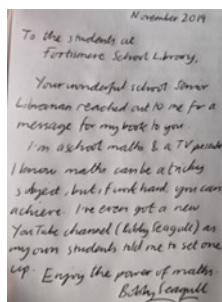 November 2019
To the students at
Fortismere School Library,
Your wonderful school Senior
Librarian reached out to me for a
message for my book to you.
I'm a school maths & a TV
I know maths can be a tricky
subject, but if work hard, you can
achieve. I've even got a new
YouTube channel (Bobby Seagull) as
my own students told me to set one
up. Enjoy the power of maths.
Bobby Seagull